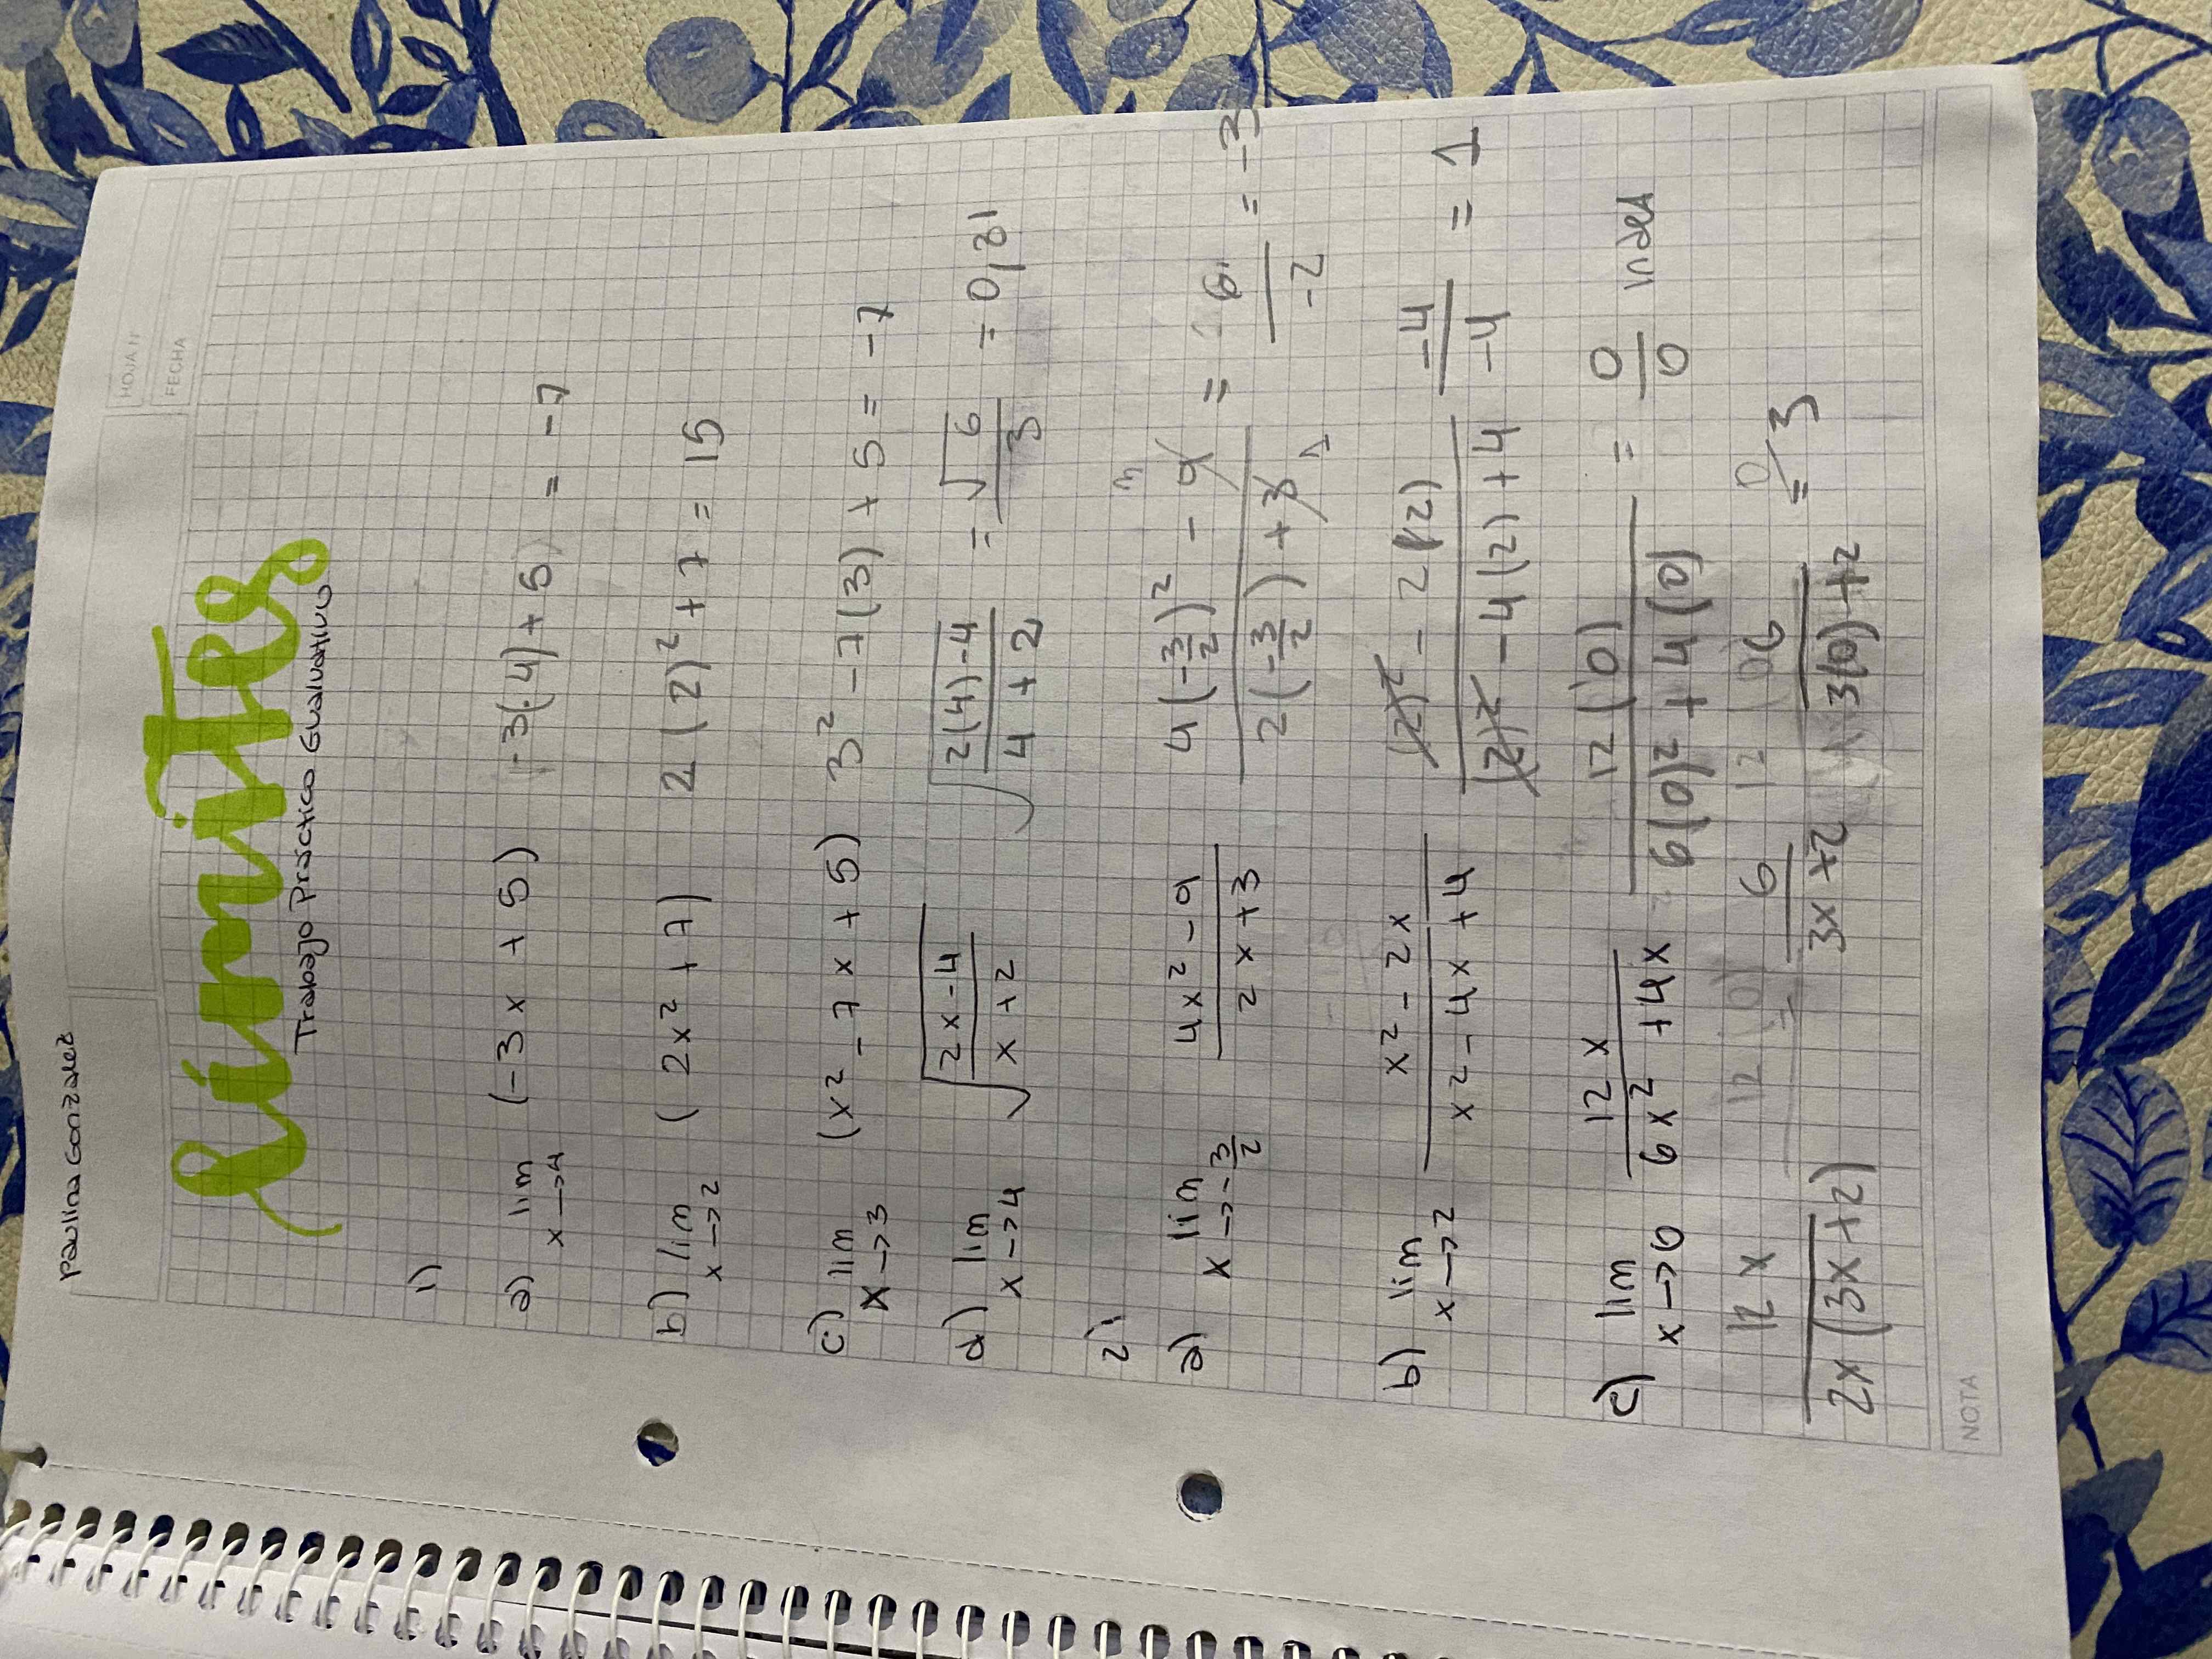 Paulina Gonzalez
HOJA N
FECHA
límites
Trabajo Práctico Evaluativo
1)
a) lim x→4 (-3x + 5) (-3(.4) + 5) = -7
b) lim x→2 (2x² + 7) 2(2)² + 7 = 15
c) lim x→3 (x² - 7x + 5) 3² - 7(3) + 5 = -7
d) lim x→4 √(2x-4 / x+2) √(2(4)-4 / 4+2) = √6 / 3 = 0,81
2)
a) lim x→-3/2 4x² - 9 / 2x + 3 4(-3/2)² - 9 3 / 2(-3/2) + 3 1 = 6 / -2 = -3
b) lim x→2 x² - 2x / x² - 4x + 4 (2)² - 2(2) / (2)² - 4(2) + 4 -4 / -4 = 1
c) lim x→0 12x / 6x² + 4x 12(0) / 6(0)² + 4(0) = 0/0 indet
12x / 2x(3x+2) = 6 / 3x+2 6 / 3(0)+2 = 3
NOTA